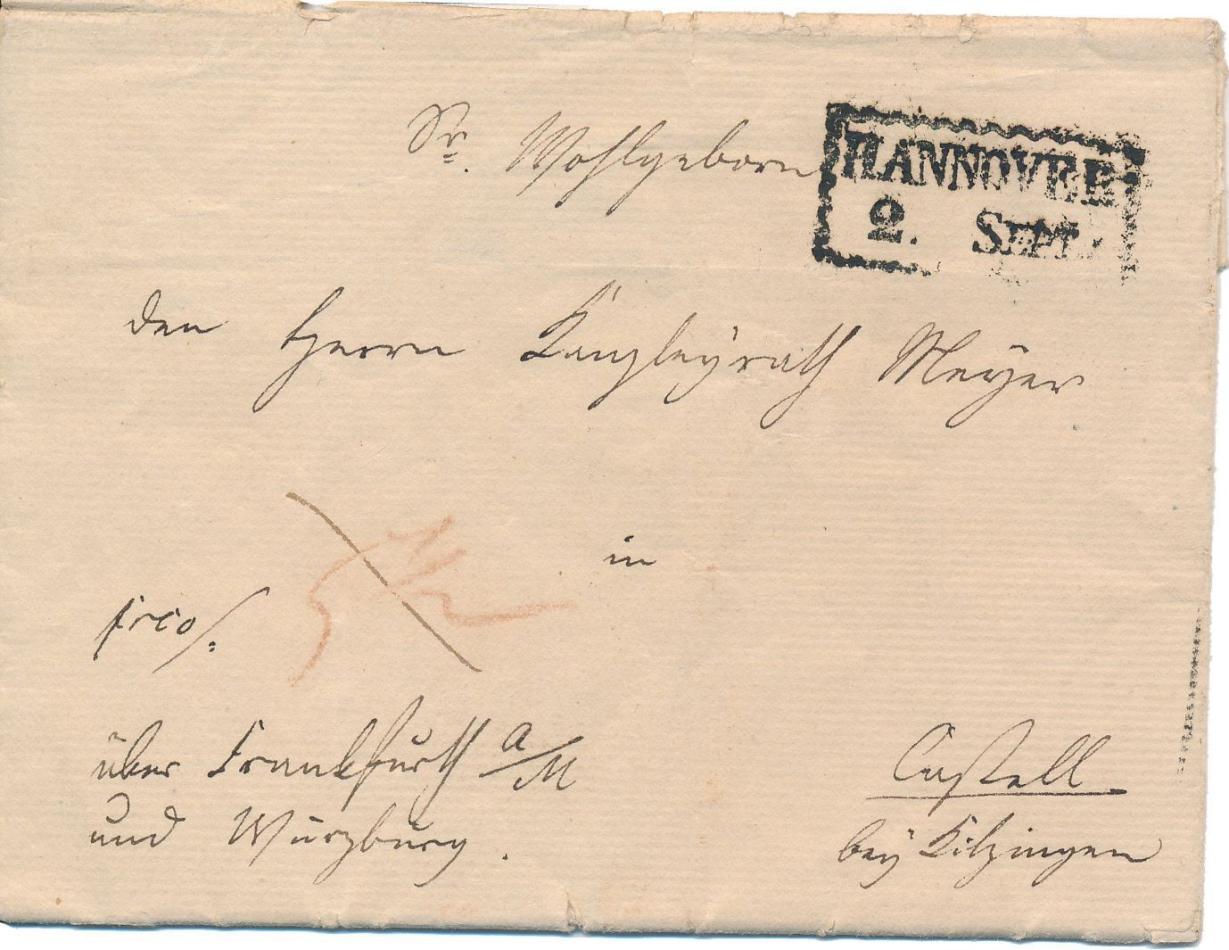 Sr. Wohlgeborn
HANNOVER
2. SEPT.
den Herrn Kanzleyrath Meyer
in
frco/.
über Frankfurth a/M
und Würzburg.
Castell
bey Kitzingen